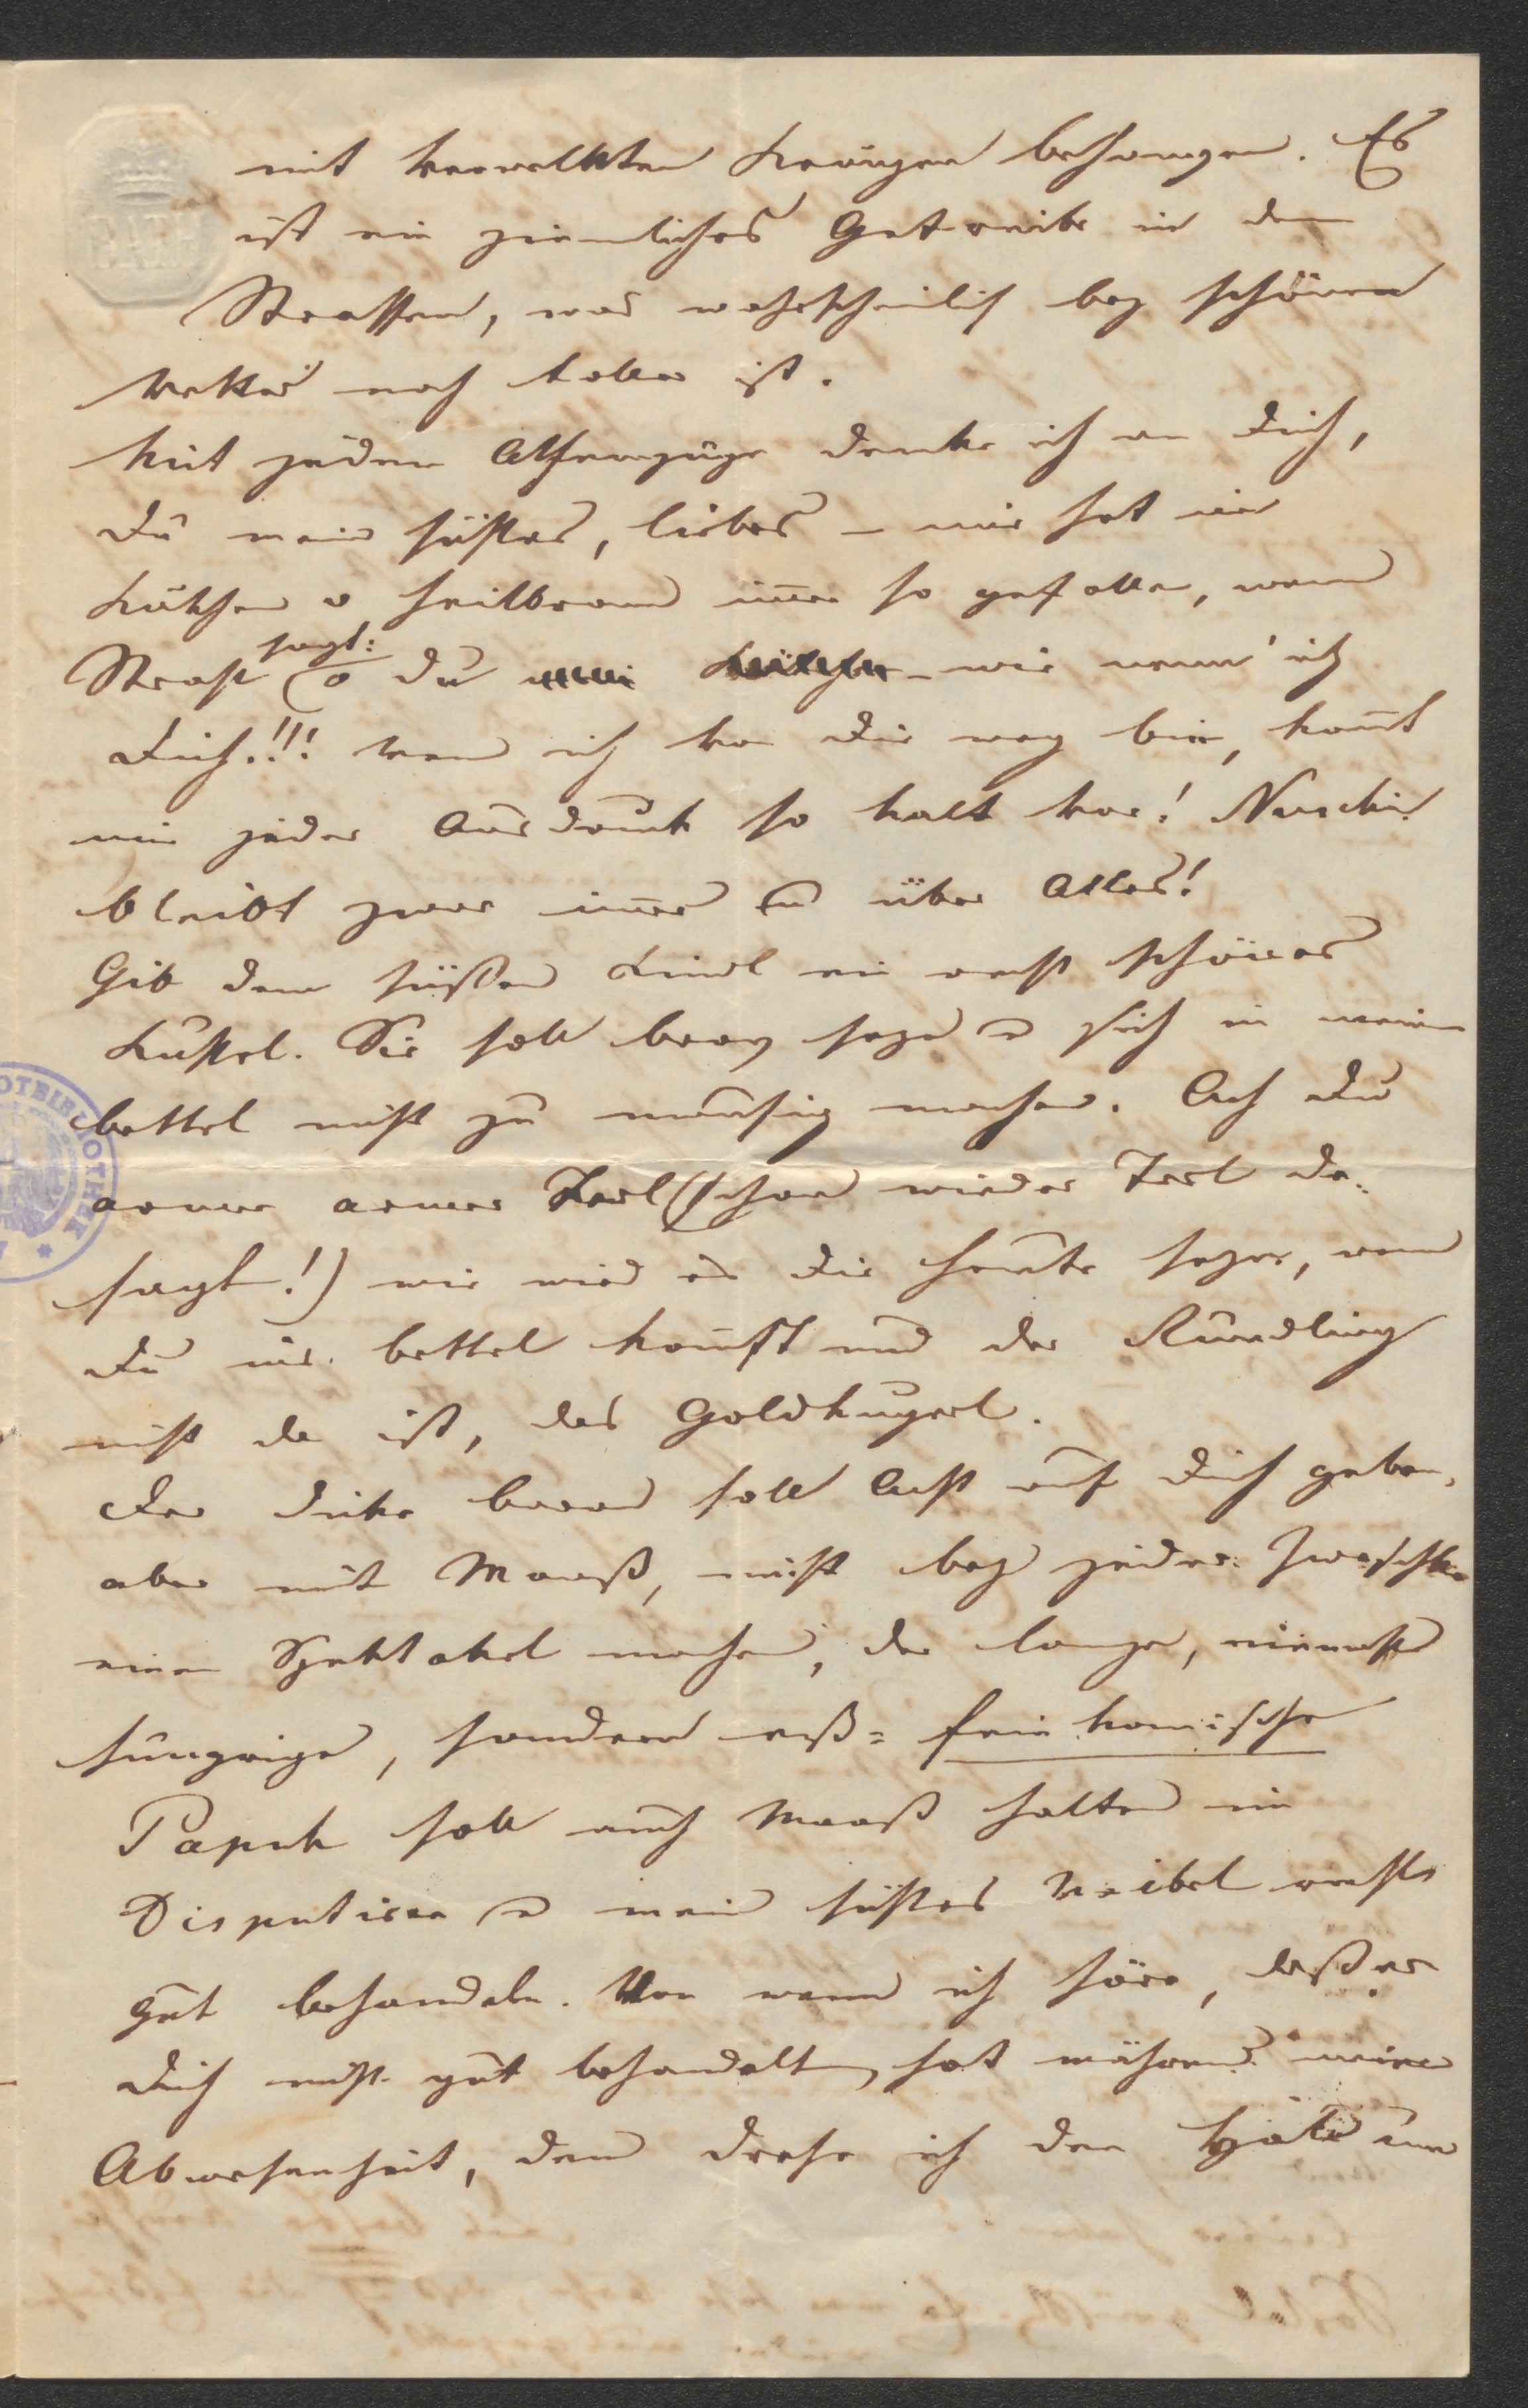 mit verwelkten Kränzen behangen. Es
ist ein ziemliches Getreibe in den
Strassen, was wahrscheinlich bey schönen
Wetter noch toller ist.
Mit jedem Athemzuge denke ich an Dich,
Du mein süsses, liebes – mir hat im
Käthchen v Heilbronn im̄er so gefallen, wenn
Strahl sagt: (o Du – wie nenn' ich
Dich!!! Wenn ich von Dir weg bin, kom̄t
mir jeder Ausdruck so kalt vor! Nuschi
bleibt zwar im̄er u über Alles!
Gib dem süßen Kindl ein recht schönes
Küssel. Sie soll brav seyn u sich in mein
bettel nicht zu mausig machen. Ach Du
armer armer Kerl (schon wieder Kerl ge:
sagt!) wie wird es Dir heute seyn, wenn
Du ins bettel kom̄st und der Rundling
nicht da ist, das Goldkugerl.
Der dicke baron soll Acht auf Dich geben,
aber mit Maaß, nicht bey jeder Zwetschke
einen Spektakel machen, der lange,
hungrige, sondern feinkomische
Papuk soll auch Maaß halten im
Disputiren u mein süsses Weibel recht
gut behandeln. Den wenn ich höre, daß er
Dich nicht gut behandelt hat während meiner
Abwesenheit, dem drehe ich den um